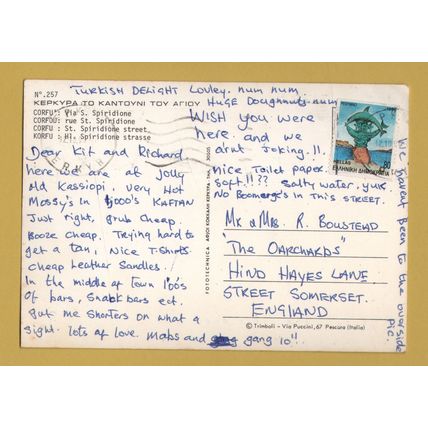 TURKISH DELIGHT Lovley. num num
HUGE Doughnuts num
Nº. 257
ΚΕΡΚΥΡΑ ΤΟ ΚΑΝΤΟΥΝΙ ΤΟΥ ΑΓΙΟΥ
CORFU': Via S. Spiridione
CORFOU: rue St. Spiridione
CORFU : St. Spiridione street
KORFU : Hl. Spiridione strasse
Dear Kit and Richard
here we are at Jolly
Old Kassiopi, Very Hot
Mossy's in 1000's KAFTAN
Just right, grub cheap.
Booze cheap. Trying hard to
get a tan, Nice T-Shirts
cheap Leather Sandles.
In the middle of Town 100's
of bars, Snack bars ect.
Put me Shorters on what a
sight. lots of love. Mabs and gang 10"
WISH you were
here and we
arnt Joking.!!
nice Toilet paper.
soft!!?? Salty water, yuk.
No Boomerge's in This STREET.
MR & MRS. R. BOULSTEAD
"THE OARCHARDS"
HIND HAYES LANE
STREET SOMERSET.
ENGLAND
We havent Been to the overside
P.C.
ΕΛΛΗΝΙΚΗ ΔΗΜΟΚΡΑΤΙΑ
HELLAS
80
FOTOTECHNICA
© Trimboli - Via Puccini, 67 Pescara (Italia)